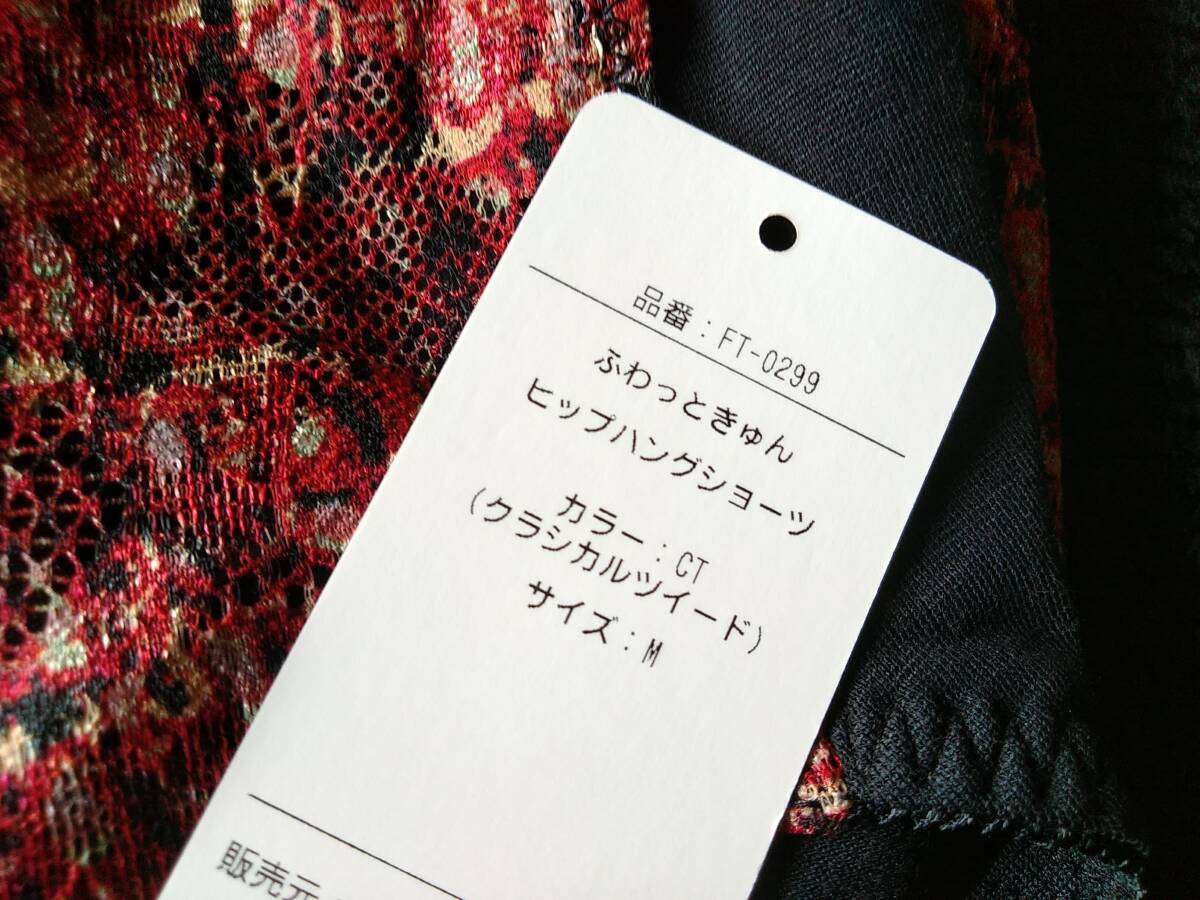 品番：FT-0299
ふわっときゅん
ヒップハングショーツ
カラー：CT
(クラシカルツイード)
サイズ：M
販売元